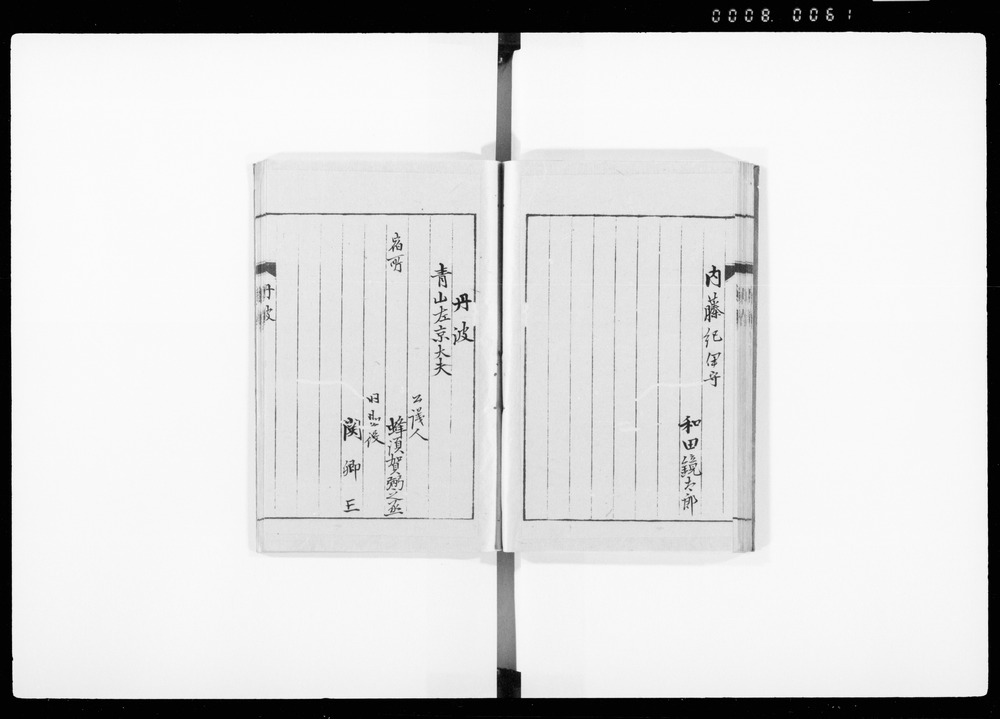 0008. 0061
内藤紀伊守
和田鏡太郎
丹波
青山左京大夫
宿所
公議人
蜂須賀弼之丞
関卿三
丹波